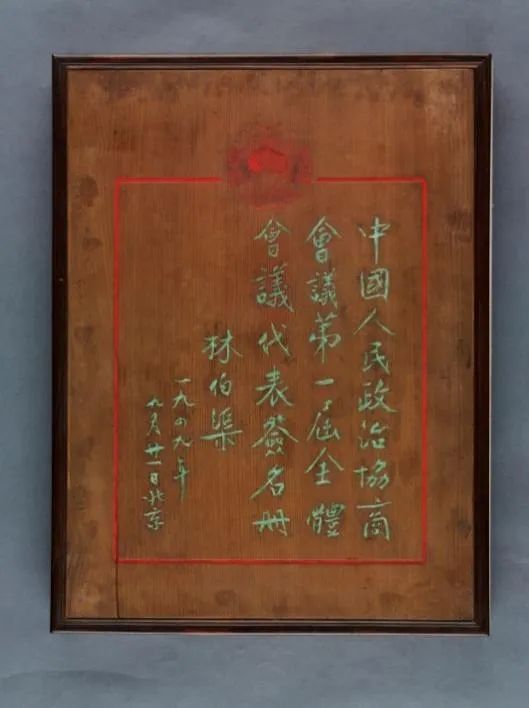 中國人民政治協商
會議第一屆全體
會議代表簽名册
林伯渠
一九四九年
九月廿一日北京